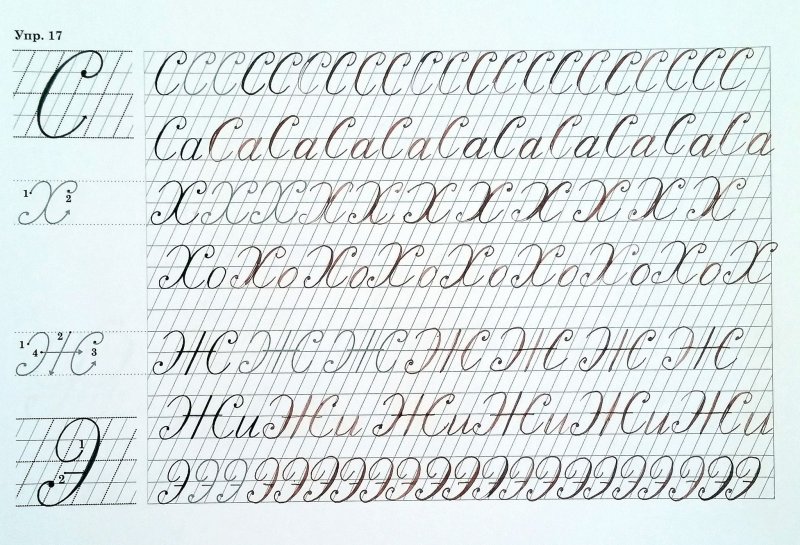 Упр. 17
С С С С С С С С С С С С С С С С С С С С С С
Са Са Са Са Са Са Са Са Са Са Са
1 Х 2 Х Х Х Х Х Х Х Х Х Х Х
Хо Хо Хо Хо Хо Хо Хо Хо Х
1 4 Ж 2 3 Ж Ж Ж Ж Ж Ж Ж
Жи Жи Жи Жи Жи Жи
Э 1 2 Э Э Э Э Э Э Э Э Э Э Э Э Э Э Э Э Э Э Э Э Э